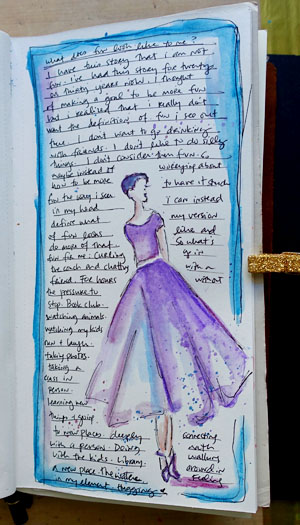 what does fun look like to me?
I have this story that i am not
fun. I've had this story for twenty
or thirty years now. I thought
of making a goal to be more fun
but i realized that i really don't
want the definition of fun i see out
there. I don't want to go drinking
with friends. I don't like to do silly
things. I don't consider them fun. So
maybe instead of worrying about
how to be more to have it
fun the way i see I can instead
in my head my version
define what
of fun looks like and
do more of that So what's
fun for me: curling up in
the couch and chatting with a
friend. For hours without
the pressure to
stop. Book club.
watching animals.
watching my kids
run & laugh.
taking photos.
taking a
class in
person.
learning new
things. going
to new places. deeply connecting
with a person. Doing math
with the kids. Library. walking
a new place. around in
in my element.